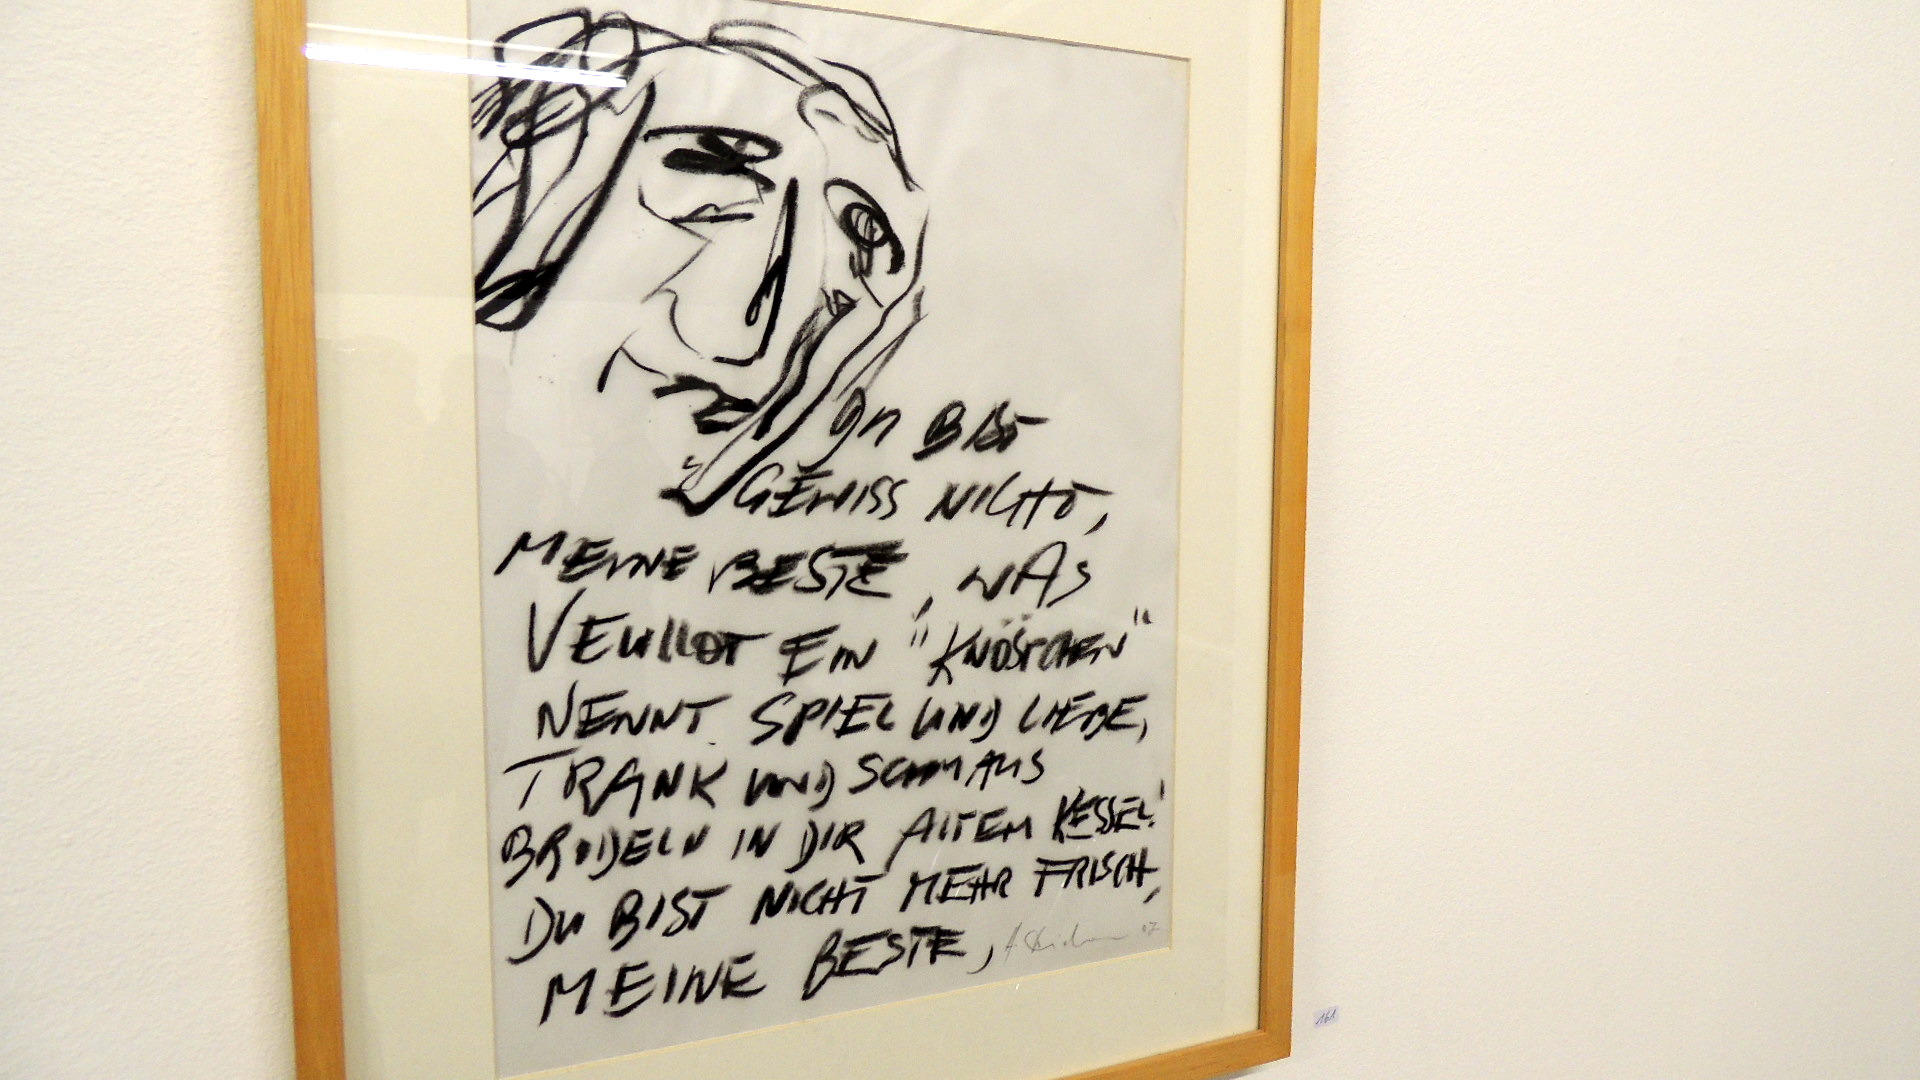 DU BIST
GEWISS NICHT,
MEINE BESTE, WAS
VEUILLOT EIN "KNÖSPCHEN"
NENNT SPIEL UND LIEBE,
TRANK UND SCHMAUS
BRODELN IN DIR ALTEM KESSEL!
DU BIST NICHT MEHR FRISCH,
MEINE BESTE,
07
161